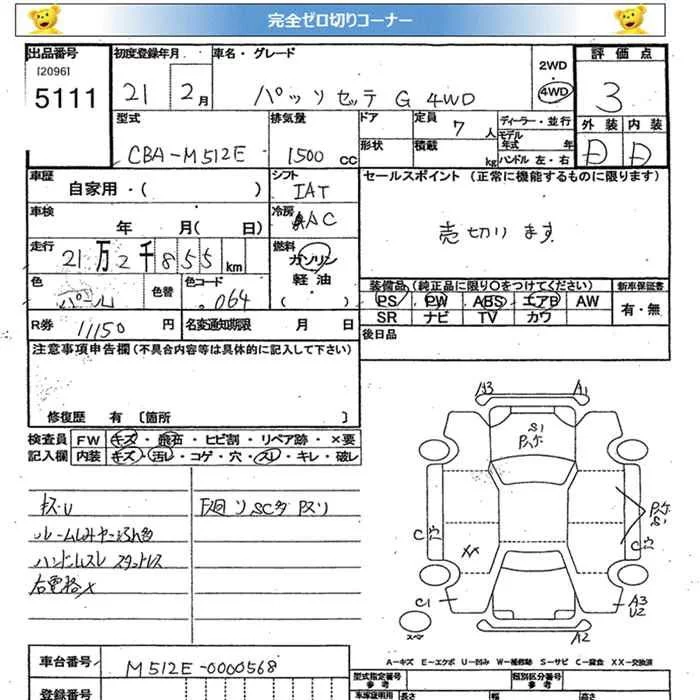 完全ゼロ切りコーナー
出品番号 初度登録年月 車名・グレード 評価点
[2096]
5111
21 2月 パッソセッテ G 4WD
2WD
4WD
3
型式 排気量 ドア 定員 7人 ディーラー・並行 外装 内装
モデル
年式 年
CBA-M512E 1500cc 形状 積載 kg ハンドル 左・右 D D
車歴 シフト セールスポイント (正常に機能するものに限ります)
自家用・( ) IAT
車検 冷房 AAC
年 月( 日) 売切ります
走行 燃料
21万2千855km ガソリン
軽油
( )
色 色替 色コード 装備品(純正品に限り○をつけてください) 新車保証書
パール 064 PS PW ABS エアB AW 有・無
SR ナビ TV カワ
R券 11150円 名変通知期限 月 日 後日品
注意事項申告欄(不具合内容等は具体的に記入して下さい)
修復歴 有 〔箇所 〕
検査員 FW キズ・飛石・ヒビ割・リペア跡・×要
記入欄 内装 キズ・汚レ・コゲ・穴・スレ・キレ・破レ
A3 A1
S1
キズU 下廻リSC多 Pスリ
ハンドルスレ スタットレス
右電格×
XX
C1 A3
U2
A2
A-キズ E-エクボ U-凹み W-補修跡 S-サビ C-腐食 XX-交換済
車台番号 M512E-0000568
型式指定番号 類別区分番号
参考 参考
登録番号 車庫証明用 長さ 幅 高さ